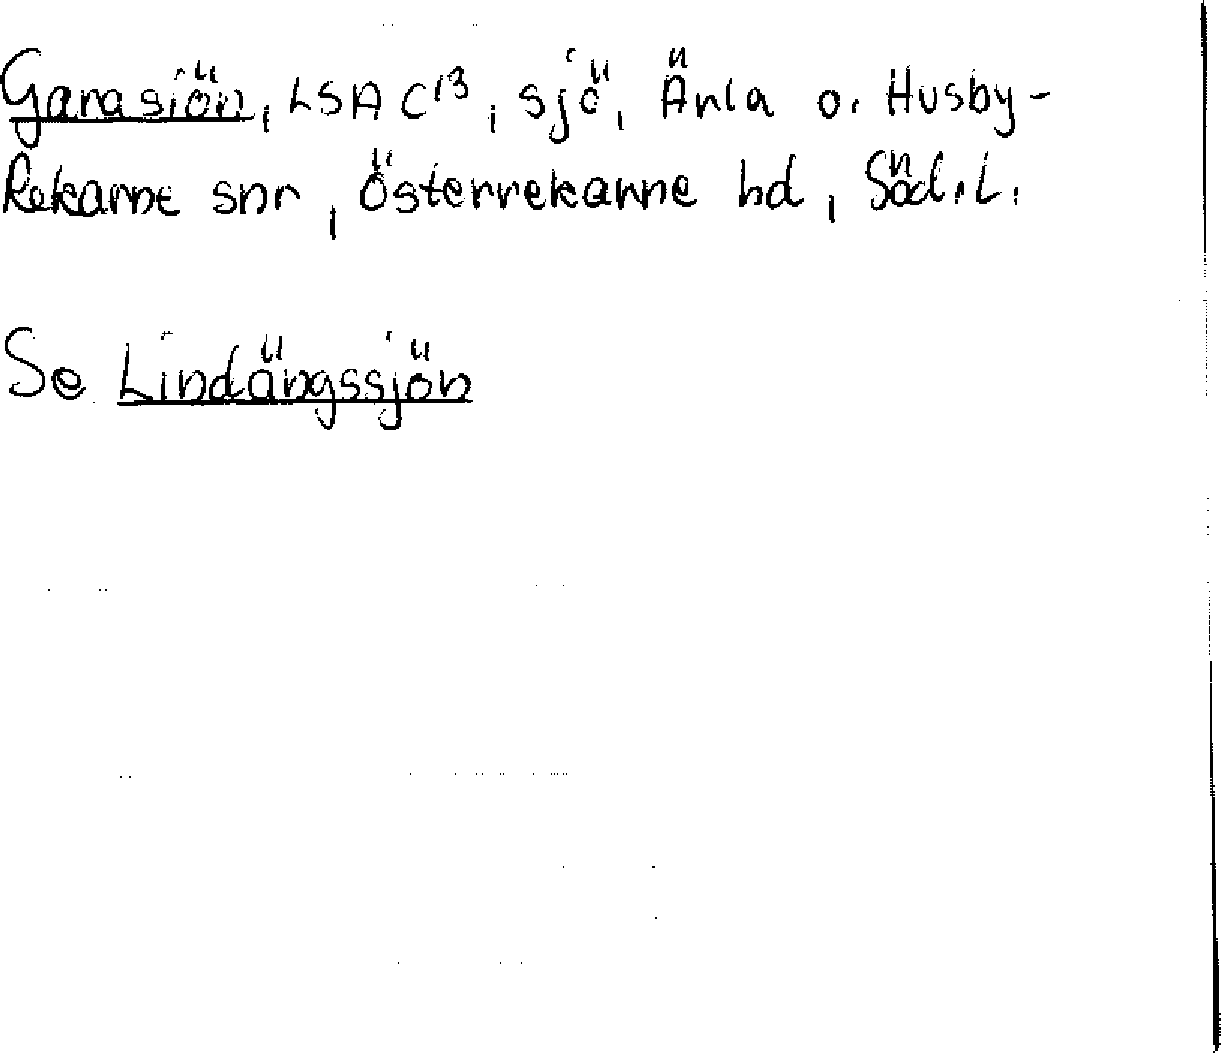 Garasiön, LSA C13, sjö, Ärla o. Husby-
Rekarne snr, Österrekarne hd, Söd.L.
Se Lindängssjön